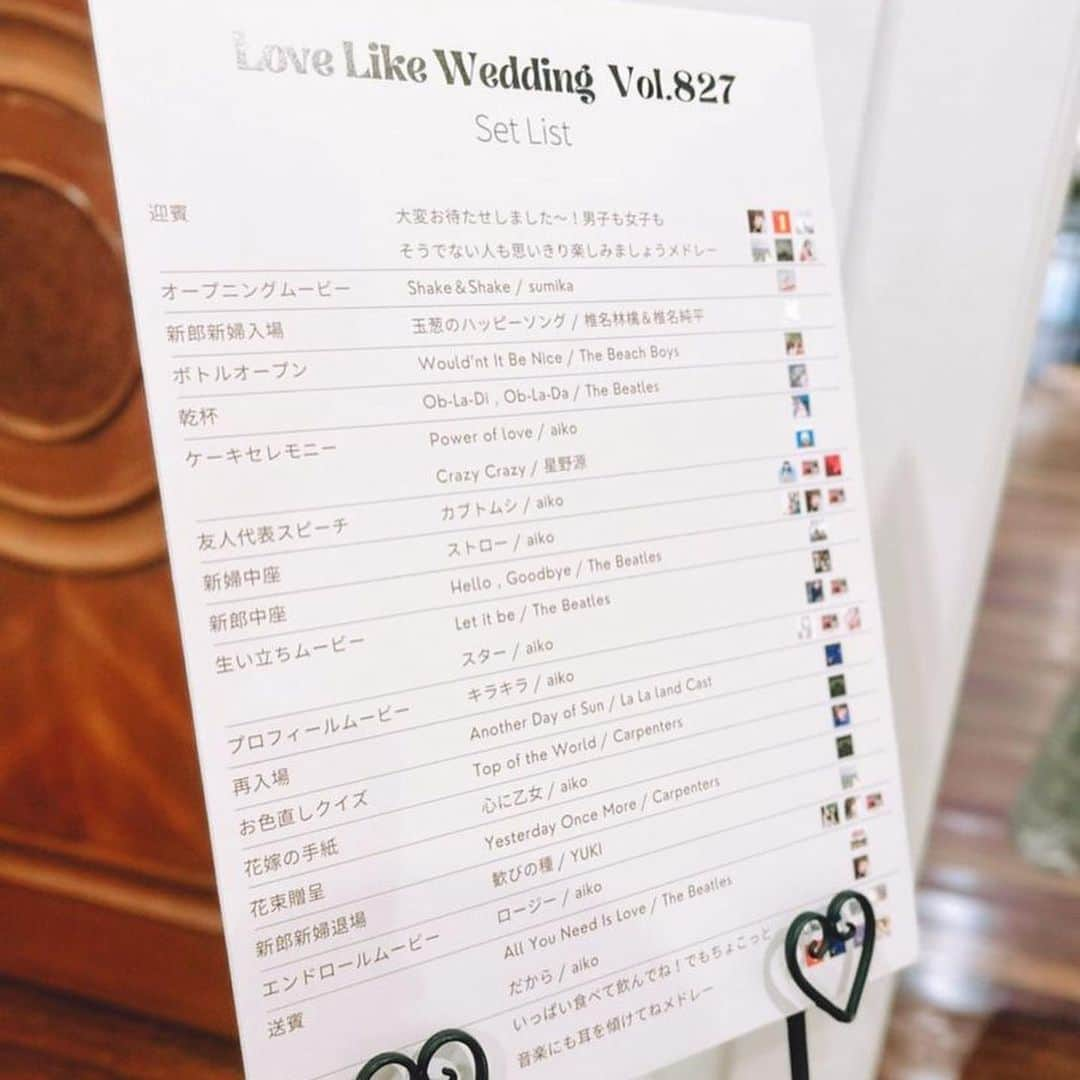 Love Like Wedding Vol.827
Set List
迎賓 大変お待たせしました〜！男子も女子も
そうでない人も思いきり楽しみましょうメドレー
オープニングムービー Shake＆Shake / sumika
新郎新婦入場 玉葱のハッピーソング / 椎名林檎＆椎名純平
ボトルオープン Would'nt It Be Nice / The Beach Boys
乾杯 Ob-La-Di , Ob-La-Da / The Beatles
ケーキセレモニー Power of love / aiko
Crazy Crazy / 星野源
友人代表スピーチ カブトムシ / aiko
新婦中座 ストロー / aiko
新郎中座 Hello , Goodbye / The Beatles
生い立ちムービー Let it be / The Beatles
スター / aiko
プロフィールムービー キラキラ / aiko
再入場 Another Day of Sun / La La land Cast
お色直しクイズ Top of the World / Carpenters
花嫁の手紙 心に乙女 / aiko
花束贈呈 Yesterday Once More / Carpenters
新郎新婦退場 歓びの種 / YUKI
エンドロールムービー ロージー / aiko
All You Need Is Love / The Beatles
送賓 だから / aiko
いっぱい食べて飲んでね！でもちょこっと
音楽にも耳を傾けてねメドレー